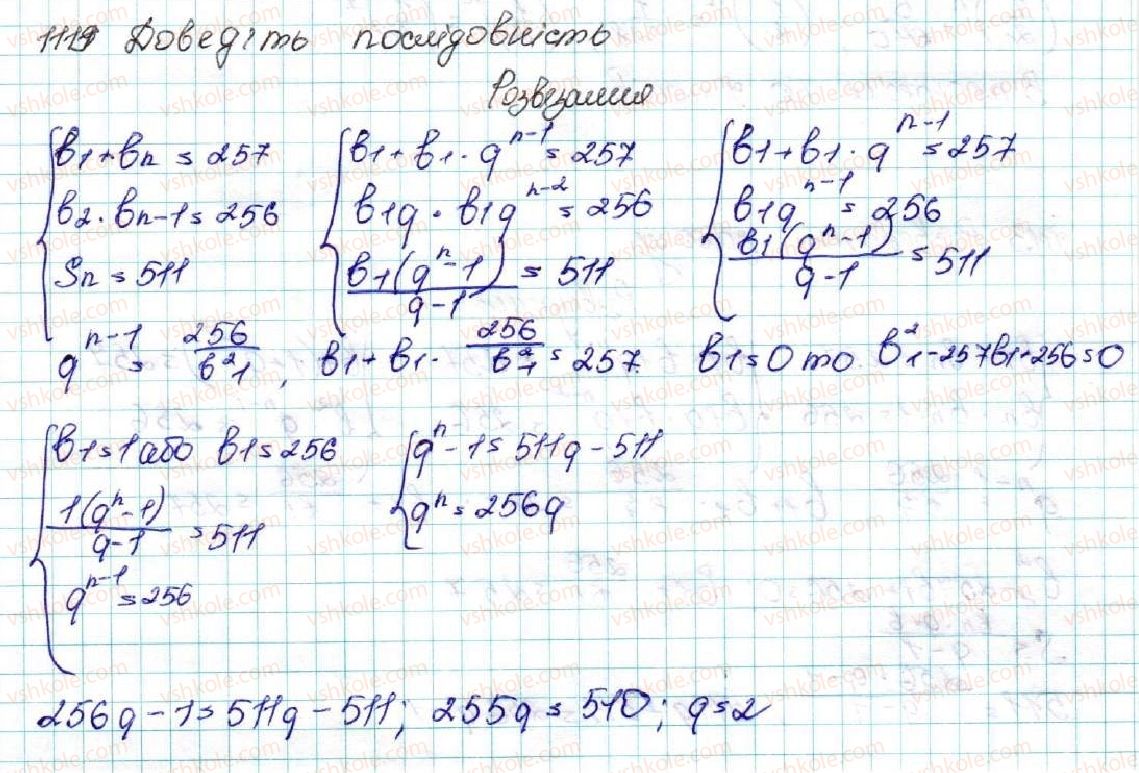 1119 Доведіть послідовність
Розвезання
b1+bn = 257
b2·bn-1 = 256
Sn = 511
b1+b1·q^(n-1) = 257
b1q·b1q^(n-2) = 256
b1(q^n-1)/(q-1) = 511
b1+b1·q^(n-1) = 257
b1q^(n-1) = 256
b1(q^n-1)/(q-1) = 511
q^(n-1) = 256/b²1, b1+b1·256/b²1 = 257. b1=0 то b²1-257b1-256=0
b1=1 або b1=256
1(q^n-1)/(q-1) = 511
q^(n-1) = 256
q^n-1 = 511q-511
q^n = 256q
256q-1=511q-511; 255q=510; q=2